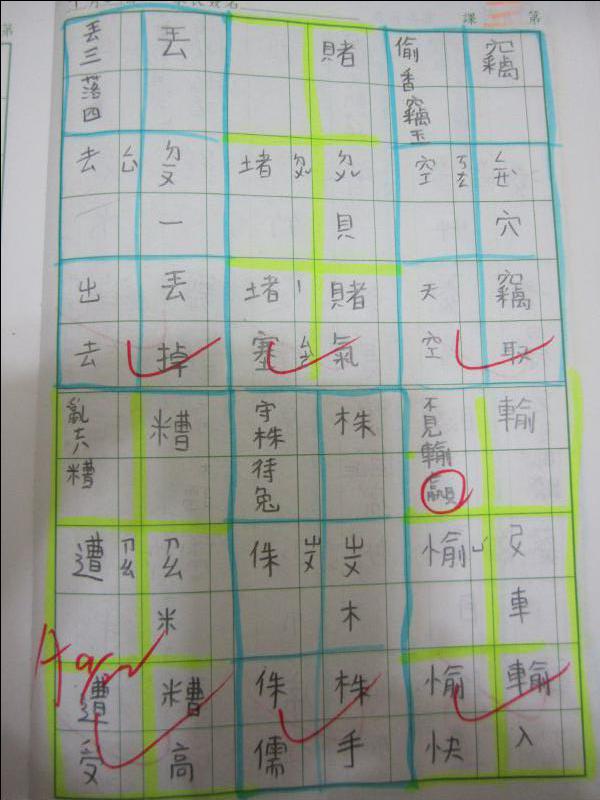 第 課
竊
穴
竊取
偷香竊玉
空
天空
賭
ㄉㄨˇ
貝
賭氣
堵 ㄉㄨˇ
堵塞
丟
一
丟掉
丟三落四
去
出去
輸
車
輸入
不見輸贏
愉
愉快
株
ㄓㄨ
木
株手
守株待兔
侏 ㄓㄨ
侏儒
糟
ㄗㄠ
米
糟高
糟
遭 ㄗㄠ
遭受